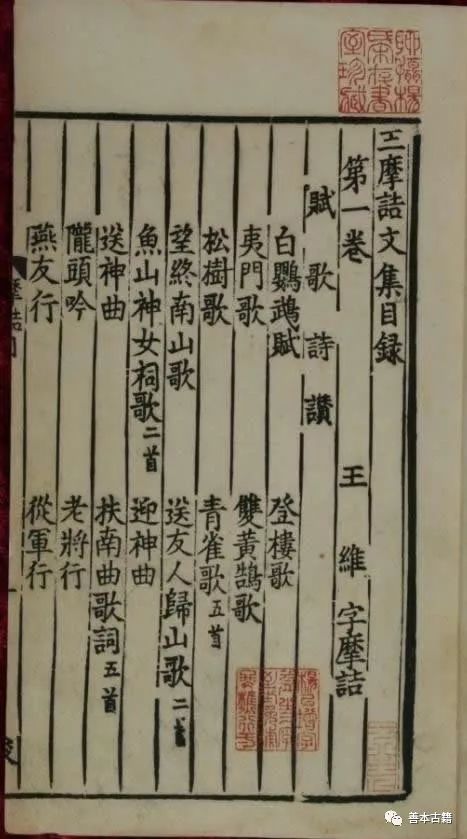 聊攝楊
宋存書
室珍藏
王摩詰文集目録
第一卷 王維字摩詰
賦歌詩讚
白鸚鵡賦 登樓歌
夷門歌 雙黃鵠歌
松樹歌 青雀歌五首
望終南山歌 送友人歸山歌二首
魚山神女祠歌二首 迎神曲
送神曲 扶南曲歌詞五首
隴頭吟 老將行
燕友行 從軍行
摩詰目
善本古籍